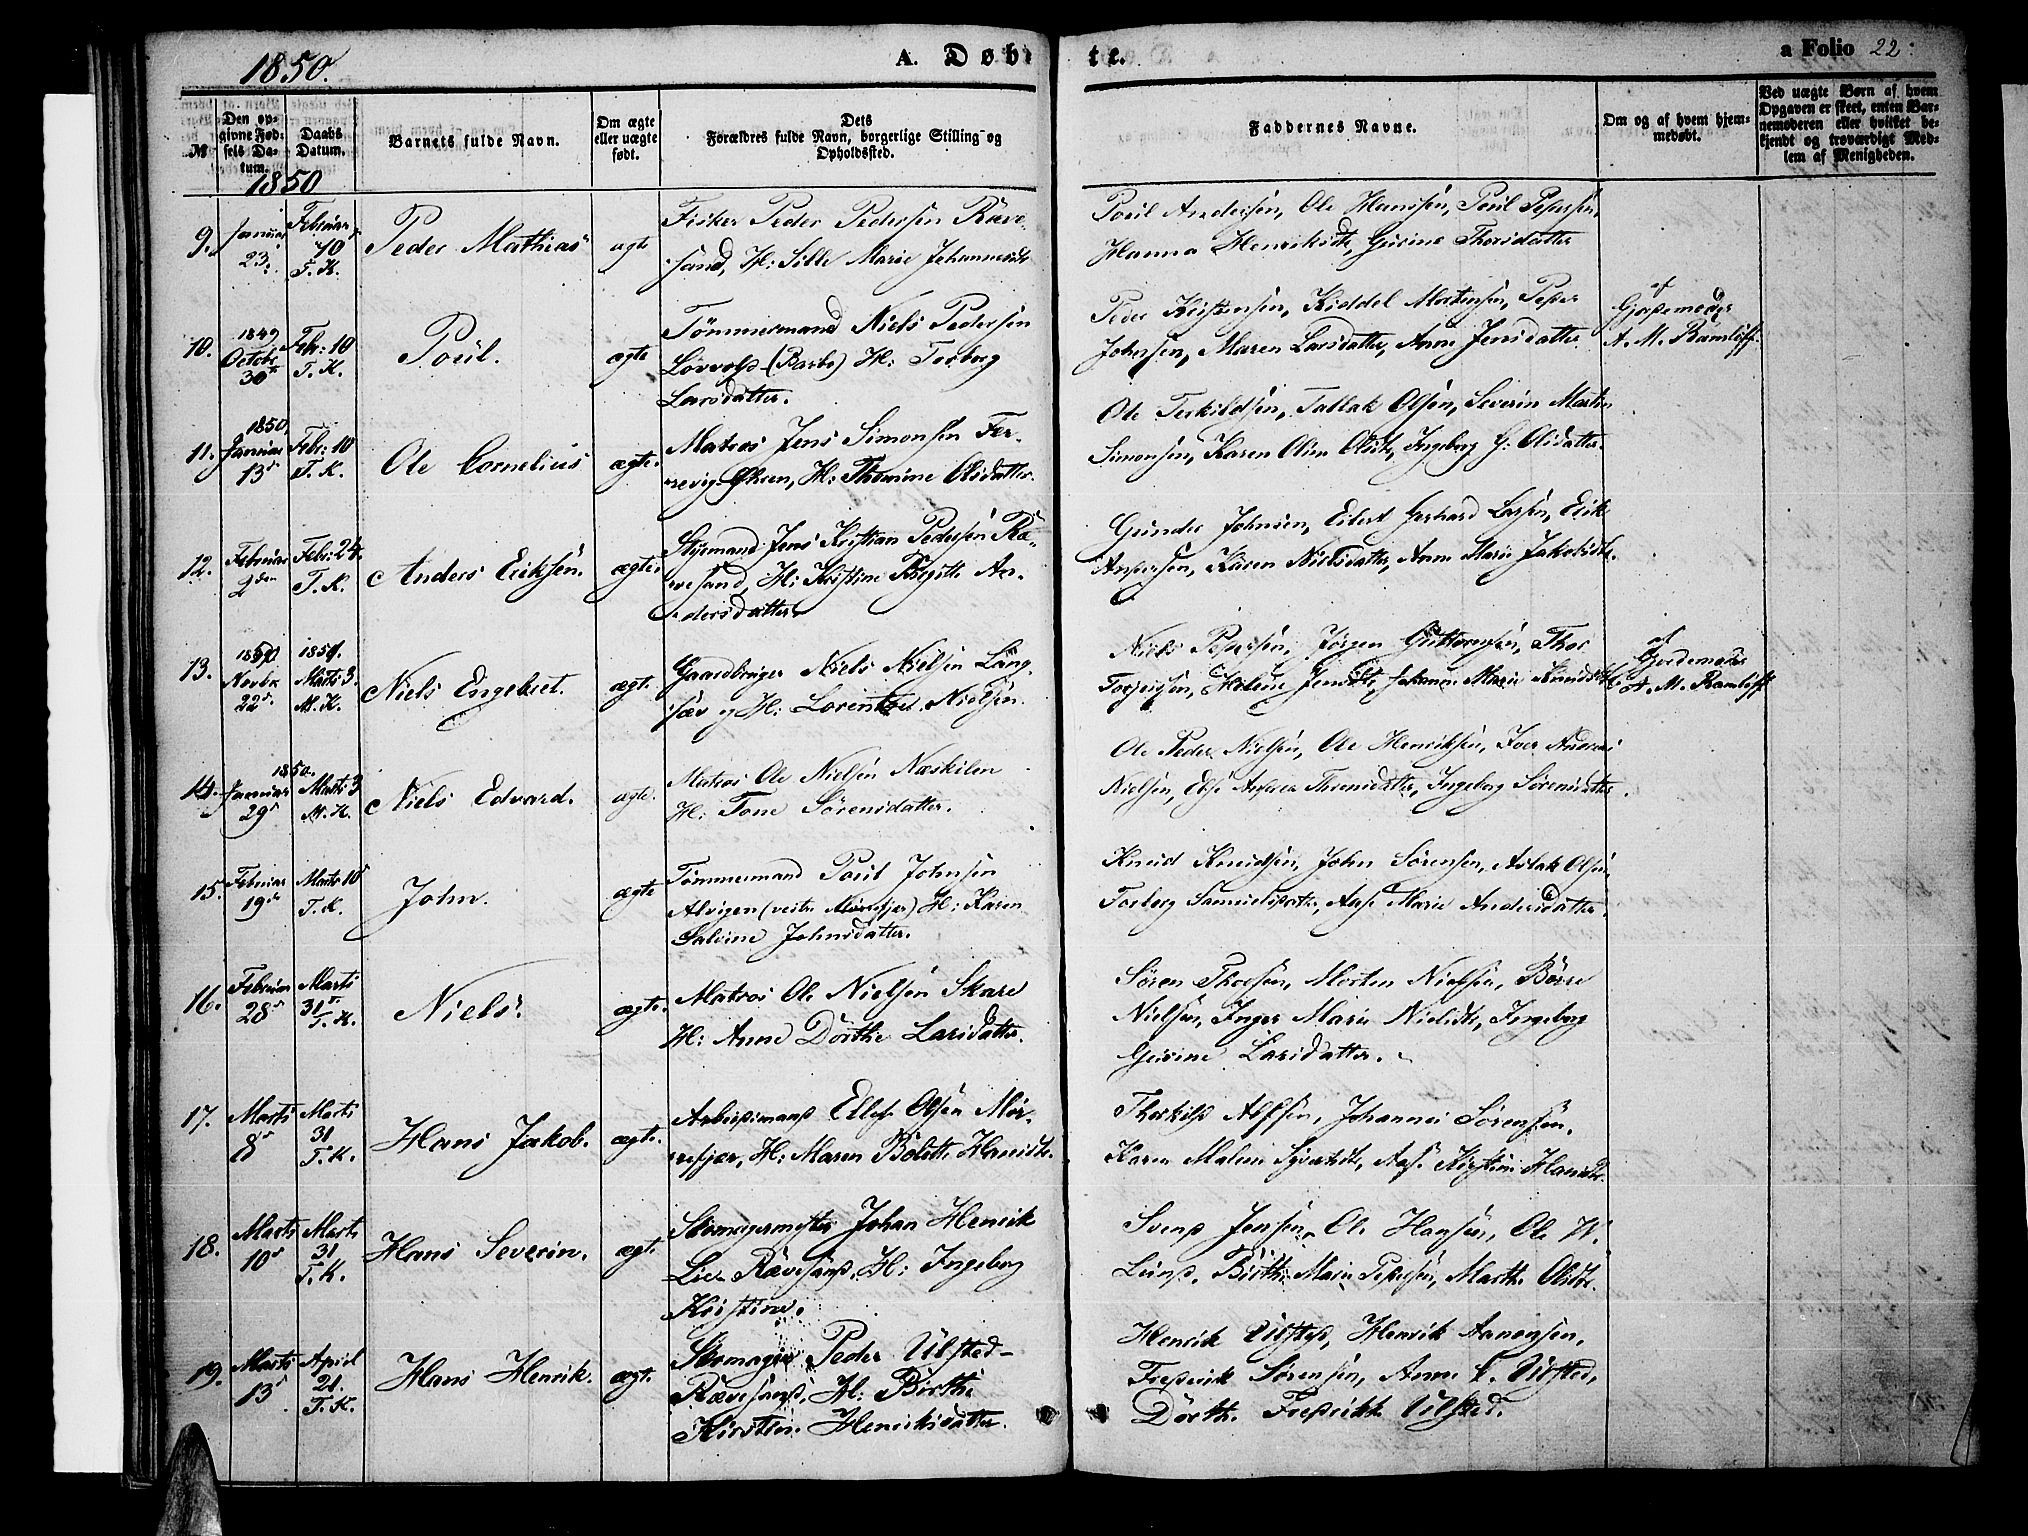 1850.
A. Døbte.
a Folio 22:
№
Den op-
givne Fød-
sels Da-
tum.
Daabs
Datum.
Barnets fulde Navn.
Om ægte
eller uægte
født.
Dets
Forældres fulde Navn, borgerlige Stilling og
Opholdssted.
Faddernes Navne.
Om og af hvem hjem-
medøbt.
Ved uægte Børn af hvem
Opgaven er skeet, enten Bar-
nemoderen eller hvilket be-
kjendt og troværdigt Med-
lem af Menigheden.
1850
9. Januar 23. Februar 10 T. K. Peder Mathias ægte
Fisker Peder Pedersen Ræve-
sand, H: Sille Marie Johannesdtr
Poul Andersen, Ole Hansen, Poul Pedersen,
Hanna Henriksdtr, Gurine Thorsdatter
10. 1849 Octobr 30te Febr: 10 T. K. Poul. ægte
Tømmermand Niels Pedersen
Løvvold (Barbo) H: Torborg
Larsdatter.
Peder Kristensen, Kiddel Mortensen, Peder
Johnsen, Maren Larsdatter, Anne Jensdatter
af
Gjordemoder
A. M. Ramløff.
11. 1850. Januar 13de Febr: 10 T. K. Ole Cornelius ægte.
Matros Jens Simonsen Fær-
revig Øhren, H: Thomine Olsdatter.
Ole Terkildsen, Tallak Olsen, Severin Martin
Simonsen, Karen Oline Olsdtr, Ingeborg G. Olsdatter.
12. Februar 2den Febr: 24. T. K. Anders Eriksen. ægte.
Styrmand Jens Kristian Pedersen Ræ-
vesand, H: Kristine Birgitte An-
dersdatter
Gunder Johnsen, Eilert Gerhard Larsen, Erik
Andersen, Karen Nielsdatter, Anne Marie Jakobsdtr.
13. Novbr 22de Marts 3. M. K. Niels Engebret. ægte.
Gaardbruger Niels Nielsen Lang-
sæv og H: Nielsen.
Niels Pedersen, Jørgen Guttormsen, Thor
Torjersen, Helene Jensdtr, Johanne Marie
af
Gjordemoder
A. M. Ramløff
14. 1850. Januar 29de Marts 3 M. K. Niels Edvard. ægte.
Matros Ole Nielsen Næskilen
H: Tone Sørensdatter.
Ole Peder Nielsen, Ole Henriksen, Iver Andreas
Nielsen, Else Andrea Thomsdatter, Ingeborg Sørensdatter.
15. Februar 19de Marts 10de T. K. John. ægte
Tømmermand Poul Johnsen
Alvigen (vestre Mørefjær) H: Karen
Salvine Johnsdatter.
Knud Knudsen, John Sørensen, Aslak Olsen,
Torborg Samuelsdatter, Aase Marie Andersdatter.
16. Februar 28de Marts 31te T. K. Niels. ægte.
Matros Ole Nielsen Skare
H: Anne Dorthe Larsdatter.
Søren Thorsen, Morten Nielsen, Børre
Nielsen, Inger Marie Nielsdtr, Ingeborg
Gurine Larsdatter.
17. Marts 8de Marts 31 T. K. Hans Jakob. ægte.
Arbeidsmand Ellef Olsen Mør-
refjær, H: Maren Bolette Hansdtr.
Thorkild Alfsen, Johannes Sørensen,
Karen Malene Syvertsdtr, Aase Kirstine Hansdtr.
18. Marts 10de Marts 31 T. K. Hans Severin. ægte.
Skomagermester Johan Henrik
Lie Rævesand, H: Ingeborg
Kristine.
Svend Jensen, Ole Hansen, Ole W.
Lund, Birthe Marie Pedersen, Marthe Olsdtr.
19. Marts 13de April 21. T. K. Hans Henrik. ægte.
Skomager Peder Ulsted-
Rævesand, H: Birthe
Kirstine Henriksdatter.
Henrik Ulsted, Henrik Aanonsen,
Frederik Sørensen, Anne C. Ulsted,
Dorthe Fredrikke Ulsted.